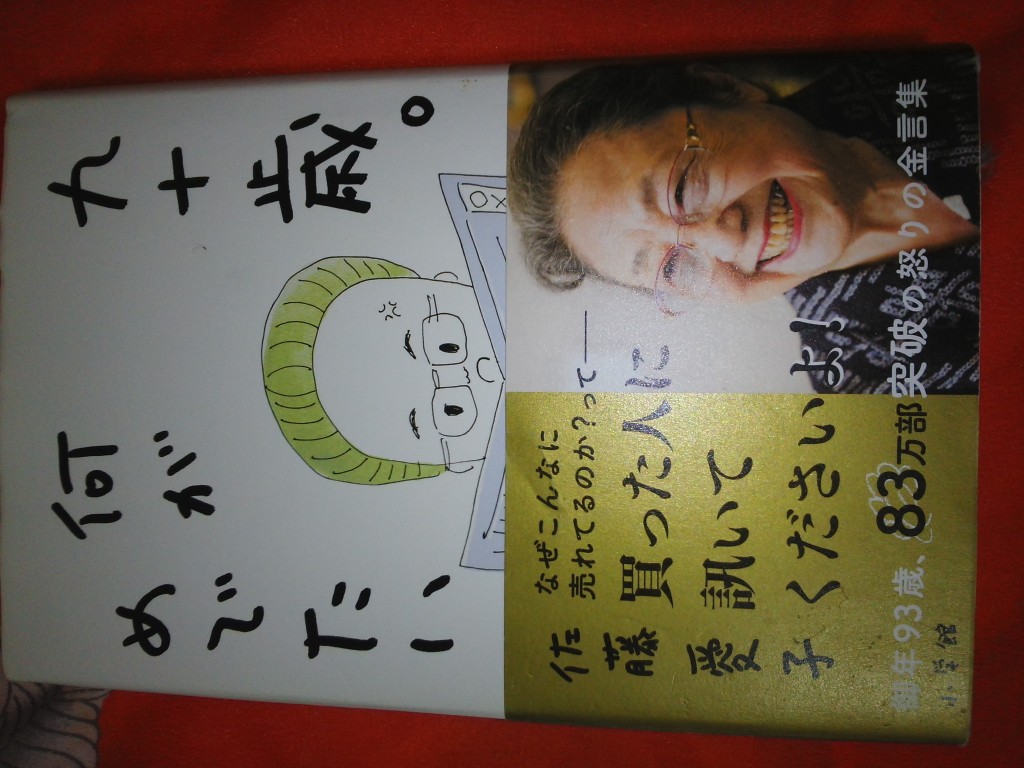 九十歳。
何が
めでたい
○×
佐藤愛子
なぜこんなに
売れてるのか?って——
買った人に
訊いて
くださいよ!
御年93歳、83万部突破の怒りの金言集
小学館